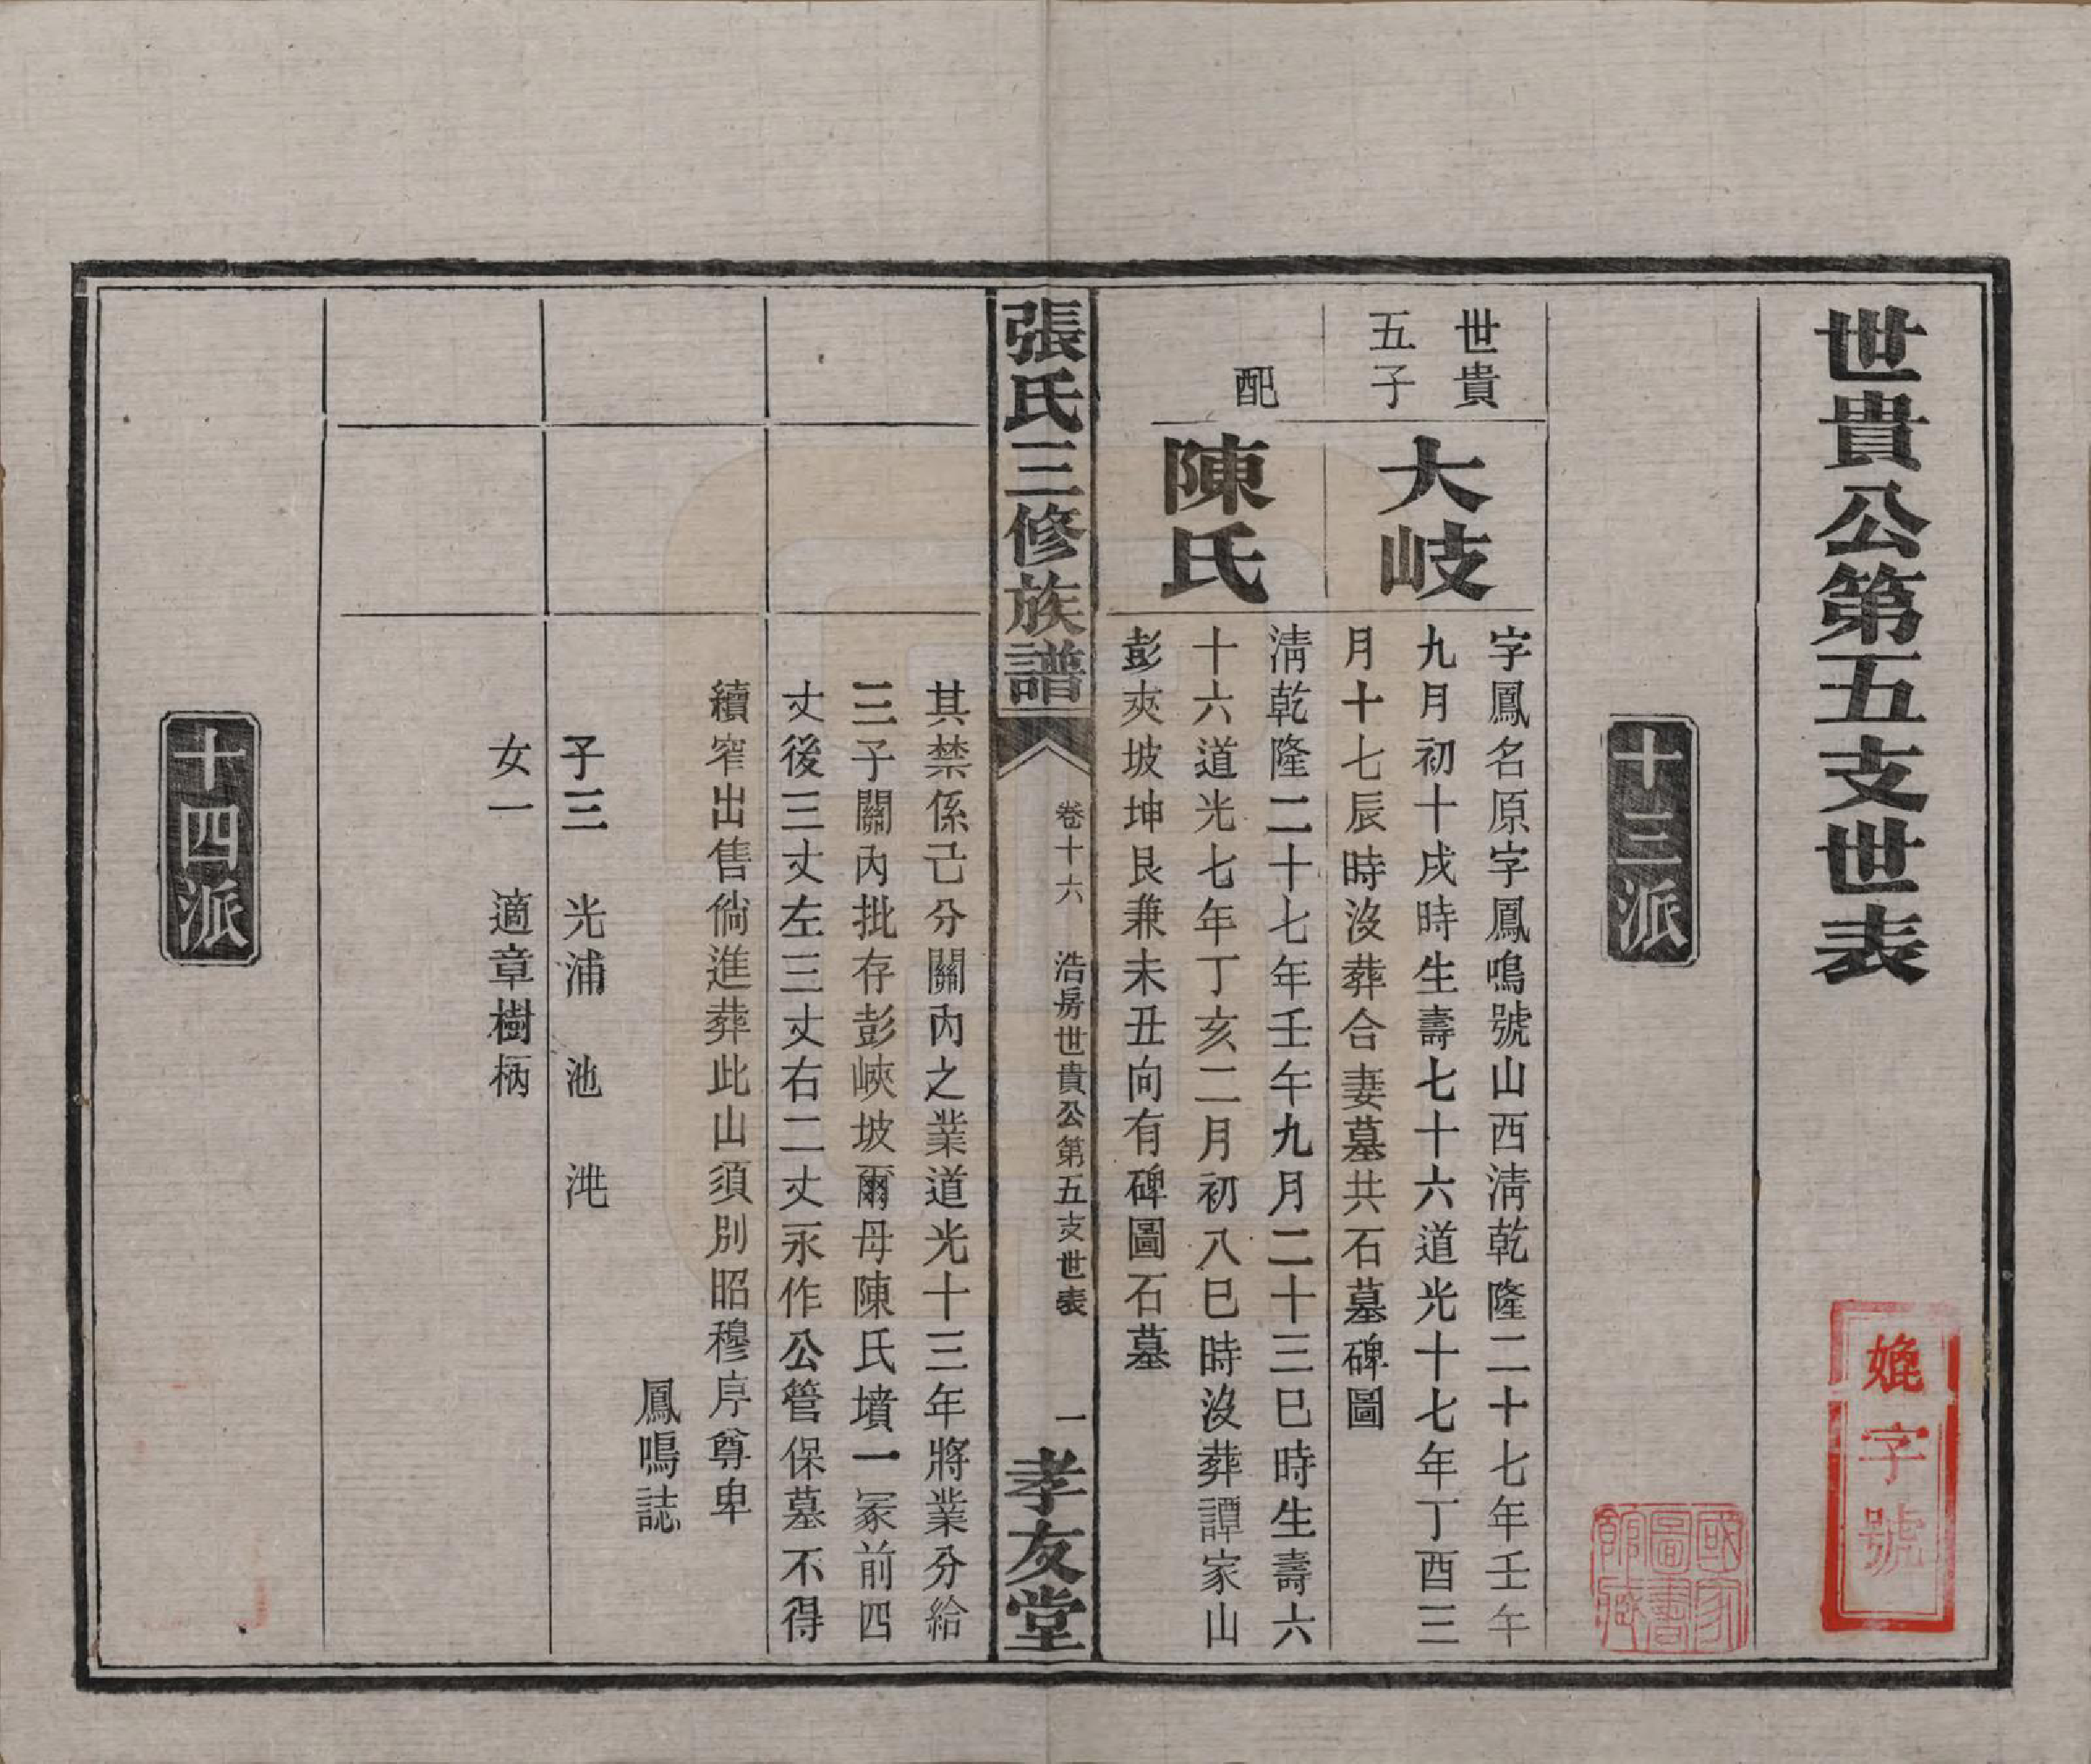 世貴公第五支世表
婏字號
國家圖書館藏
十三派
世貴
五子
大岐
字鳳名原字鳳鳴號山西淸乾隆二十七年壬午
九月初十戌時生壽七十六道光十七年丁酉三
月十七辰時沒葬合妻墓共石墓碑圖
配
陳氏
淸乾隆二十七年壬午九月二十三巳時生壽六
十六道光七年丁亥二月初八巳時沒葬譚家山
彭夾坡坤艮兼未丑向有碑圖石墓
張氏三修族譜
卷十六 浩房世貴公第五支世表
一
孝友堂
其禁係己分關內之業道光十三年將業分給
三子關內批存彭峽坡爾母陳氏墳一冢前四
丈後三丈左三丈右二丈永作公管保墓不得
續窄出售倘進葬此山須別昭穆序尊卑
鳳鳴誌
子三 光浦 池 灺
女一 適章樹柄
十四派